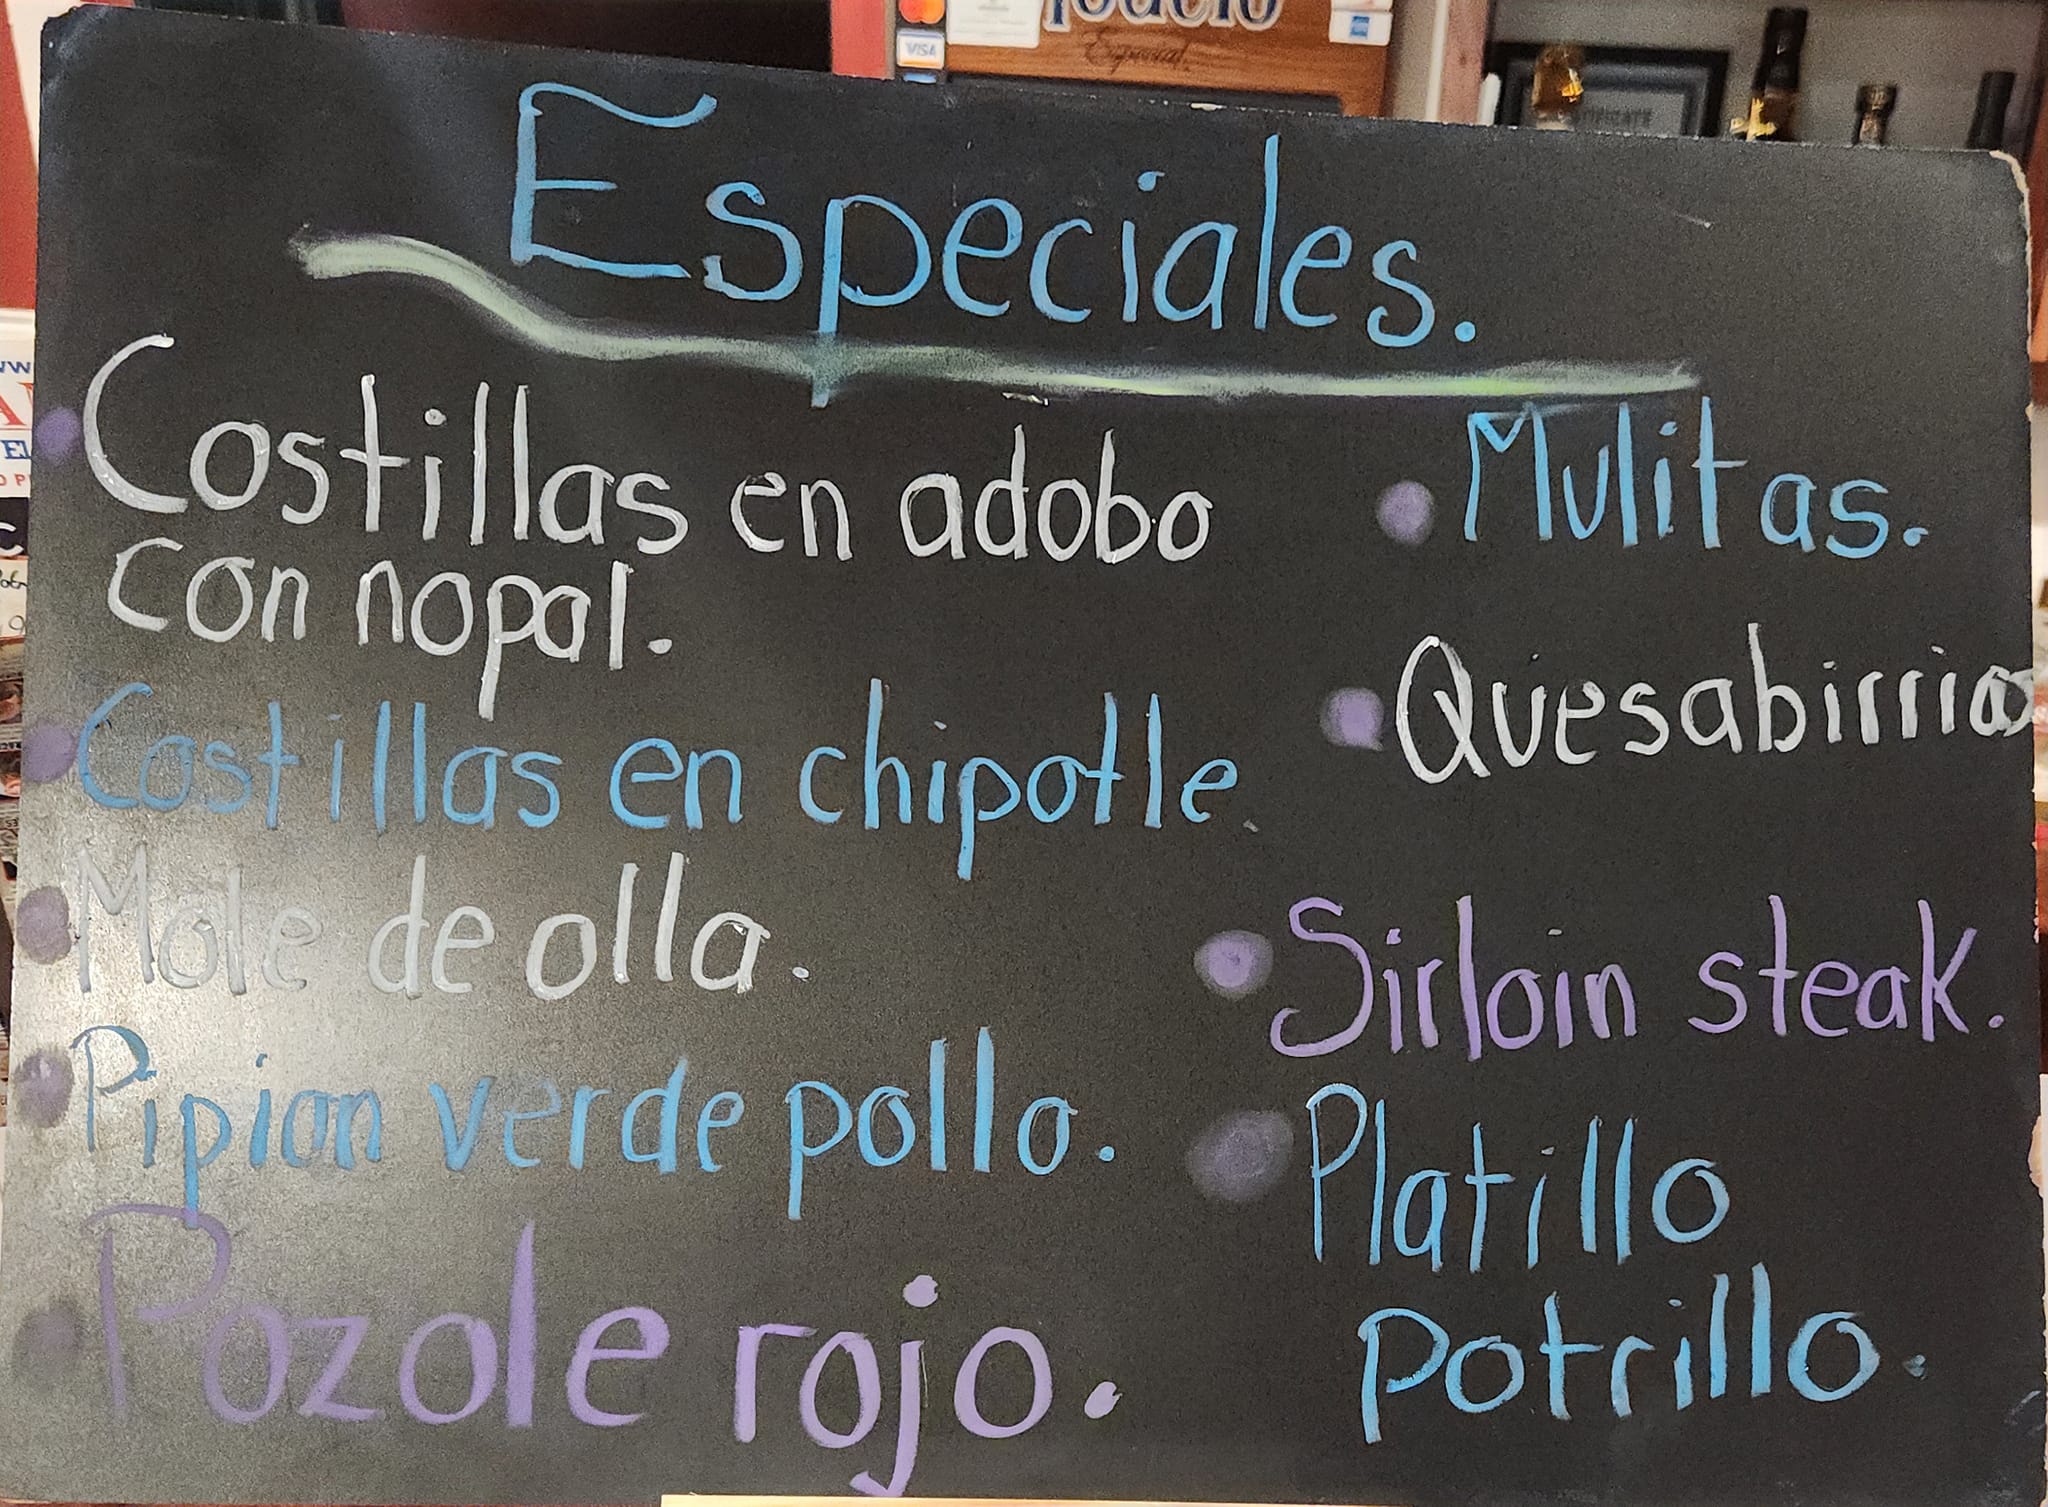 Especial
VISA
Especiales.
Costillas en adobo
con nopal.
Costillas en chipotle.
Mole de olla.
Pipian verde pollo.
Pozole rojo.
Mulitas.
Quesabirria
Sirloin steak.
Platillo
potrillo.